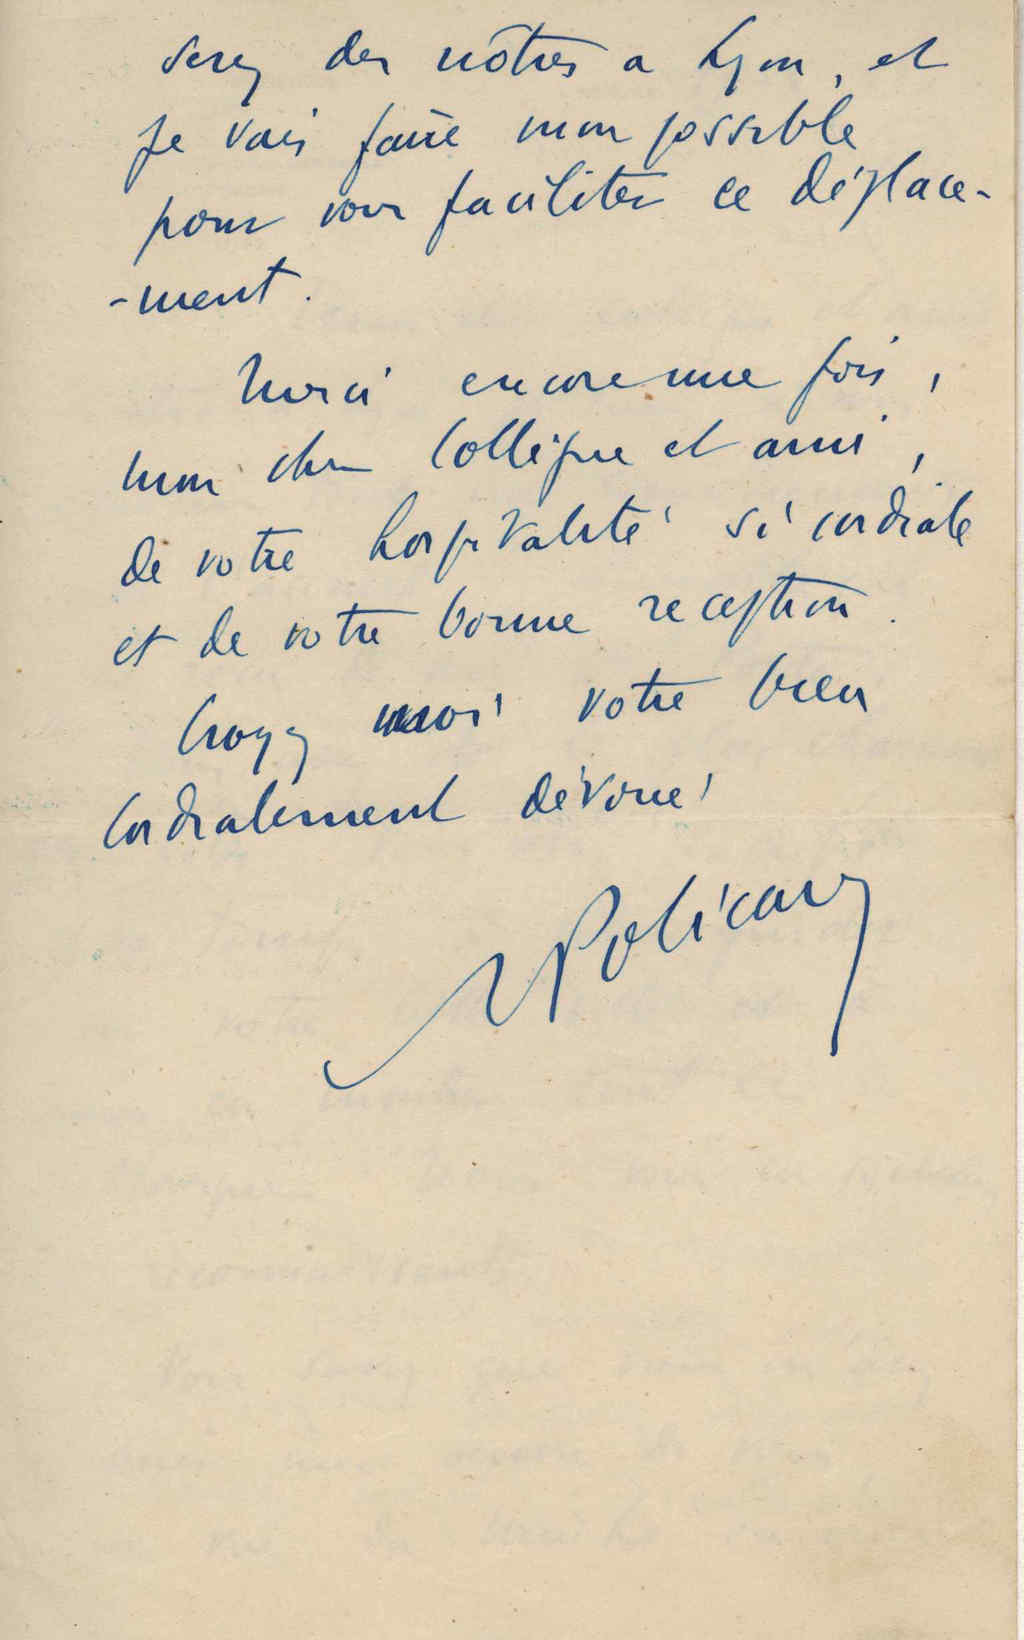 serez des nôtres a Lyon, et
je vais faire mon possible
pour vous faciliter ce déplace-
-ment.
Merci encore une fois,
mon cher Collègue et ami,
de votre hospitalité si cordiale
et de votre bonne reception.
Croyez moi votre bien
Cordialement dévoué
Policard